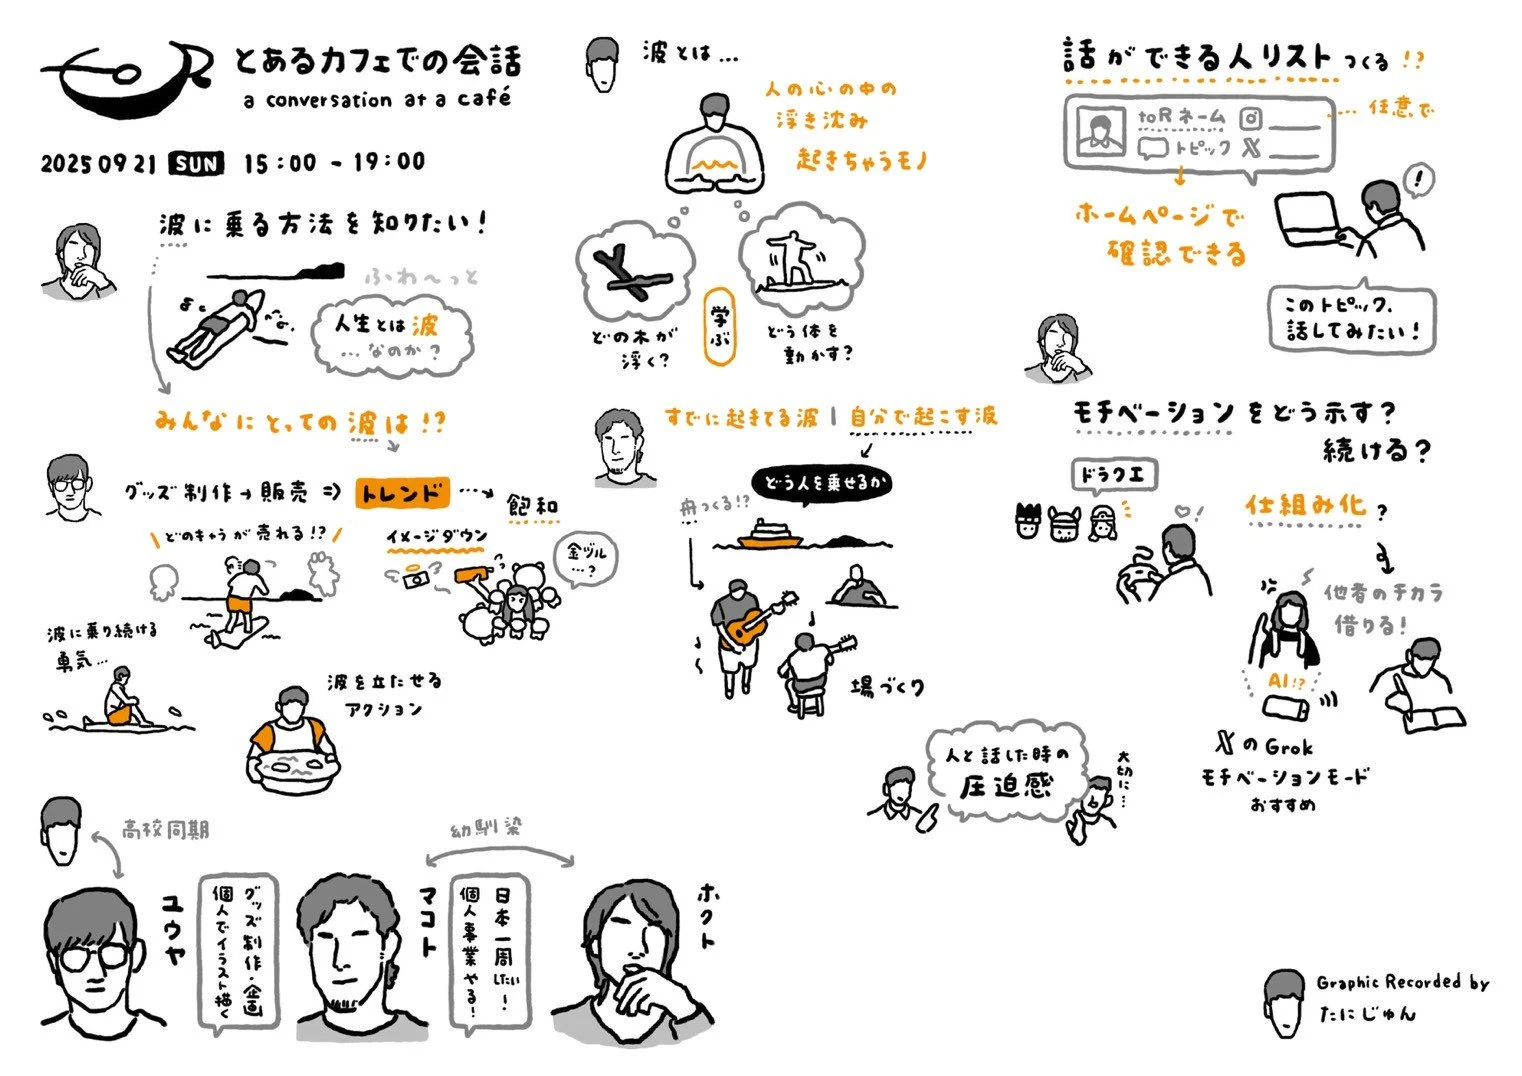 とあるカフェでの会話
a conversation at a café
2025 09 21 SUN 15:00 - 19:00
波に乗る方法を知りたい!
ふわ〜っと
人生とは波
…なのか?
みんなにとっての波は!?
グッズ制作→販売⇒トレンド…→飽和
どのキャラが売れる!?
イメージダウン
金ヅル
…?
波に乗り続ける
勇気…
波を立たせる
アクション
波とは…
人の心の中の
浮き沈み
起きちゃうモノ
どの木が
浮く?
学ぶ
どう体を
動かす?
すでに起きてる波 | 自分で起こす波
どう人を乗せるか
舟つくる!?
場づくり
人と話した時の
圧迫感
大切に…
話ができる人リストつくる!?
toRネーム
トピック
…任意で
ホームページで
確認できる
!
このトピック、
話してみたい!
モチベーションをどう示す?
続ける?
ドラクエ
仕組み化?
他者のチカラ
借りる!
AI!?
XのGrok
モチベーションモード
おすすめ
高校同期
幼馴染
ユウヤ
グッズ制作・企画
個人でイラスト描く
マコト
日本一周したい!
個人事業やる!
ホクト
Graphic Recorded by
たにじゅん